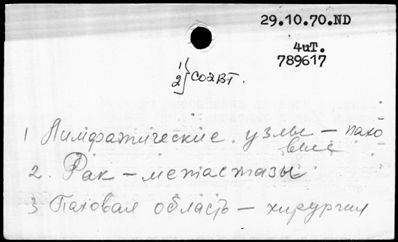 29.10.70.ND
4иТ.
789617
1) 2) соавт.
1 Лимфатические узлы – пахо
вые
2. Рак – метастазы
3 Паховая область – хирургия